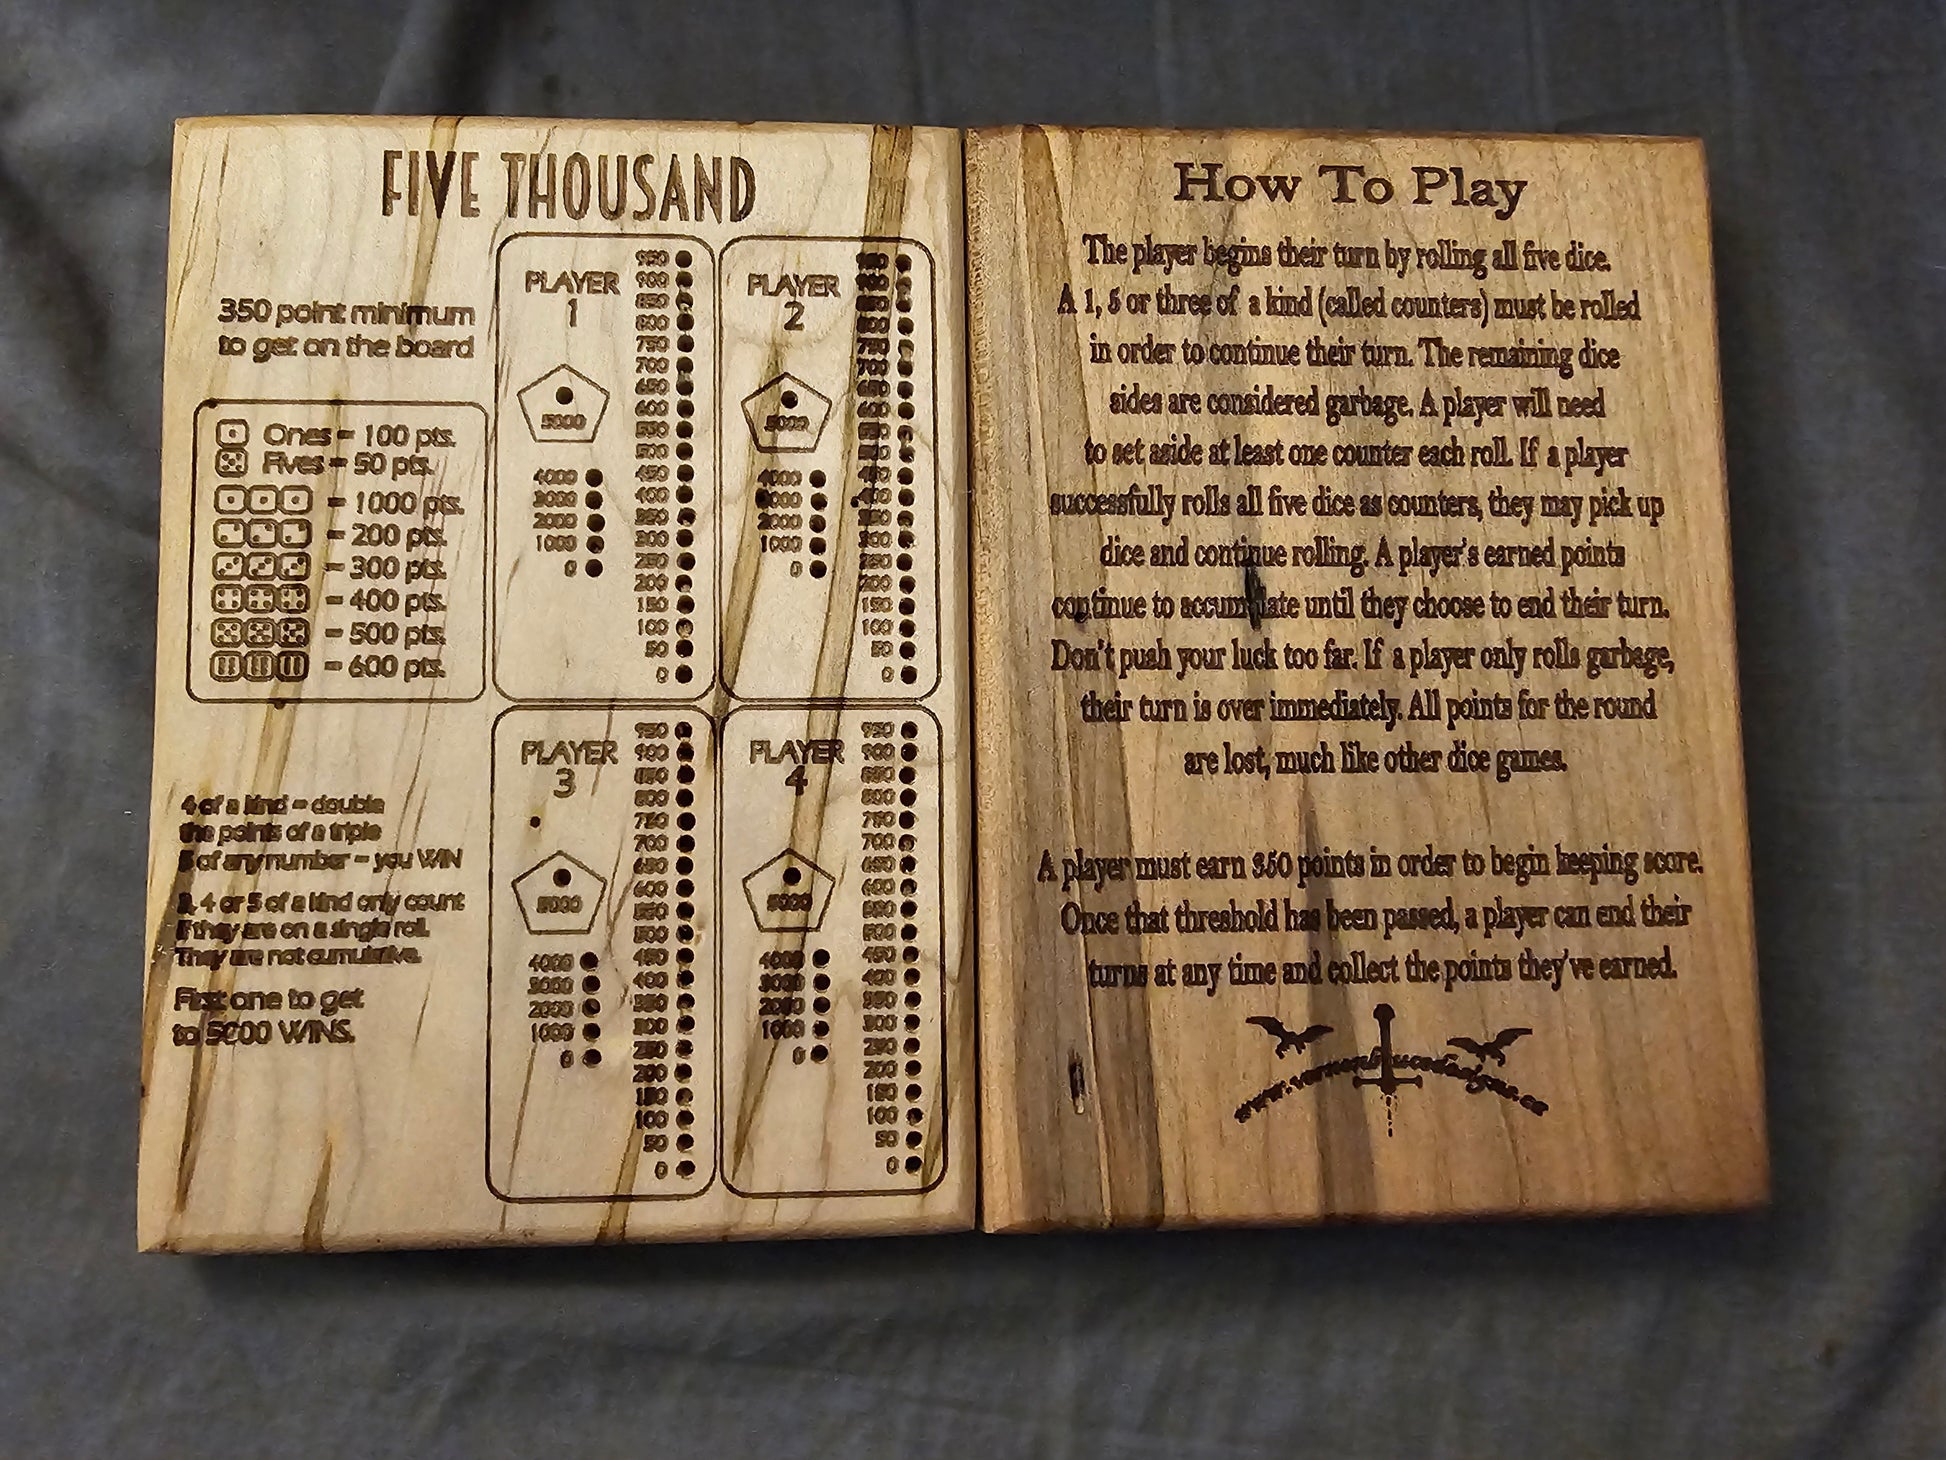 FIVE THOUSAND
350 point minimum
to get on the board
Ones = 100 pts.
Fives = 50 pts.
= 1000 pts.
= 200 pts.
= 300 pts.
= 400 pts.
= 500 pts.
= 600 pts.
4 of a kind = double
the points of a triple
5 of any number = you WIN
3, 4 or 5 of a kind only count
if they are on a single roll.
They are not cumulative.
First one to get
to 5000 WINS.
PLAYER
1
5000
4000
3000
2000
1000
0
950
900
850
800
750
700
650
600
550
500
450
400
350
300
250
200
150
100
50
0
PLAYER
2
5000
4000
3000
2000
1000
0
950
900
850
800
750
700
650
600
550
500
450
400
350
300
250
200
150
100
50
0
PLAYER
3
5000
4000
3000
2000
1000
0
950
900
850
800
750
700
650
600
550
500
450
400
350
300
250
200
150
100
50
0
PLAYER
4
5000
4000
3000
2000
1000
0
950
900
850
800
750
700
650
600
550
500
450
400
350
300
250
200
150
100
50
0
How To Play
The player begins their turn by rolling all five dice.
A 1, 5 or three of a kind (called counters) must be rolled
in order to continue their turn. The remaining dice
sides are considered garbage. A player will need
to set aside at least one counter each roll. If a player
successfully rolls all five dice as counters, they may pick up
dice and continue rolling. A player's earned points
continue to accumulate until they choose to end their turn.
Don't push your luck too far. If a player only rolls garbage,
their turn is over immediately. All points for the round
are lost, much like other dice games.
A player must earn 350 points in order to begin keeping score.
Once that threshold has been passed, a player can end their
turns at any time and collect the points they've earned.